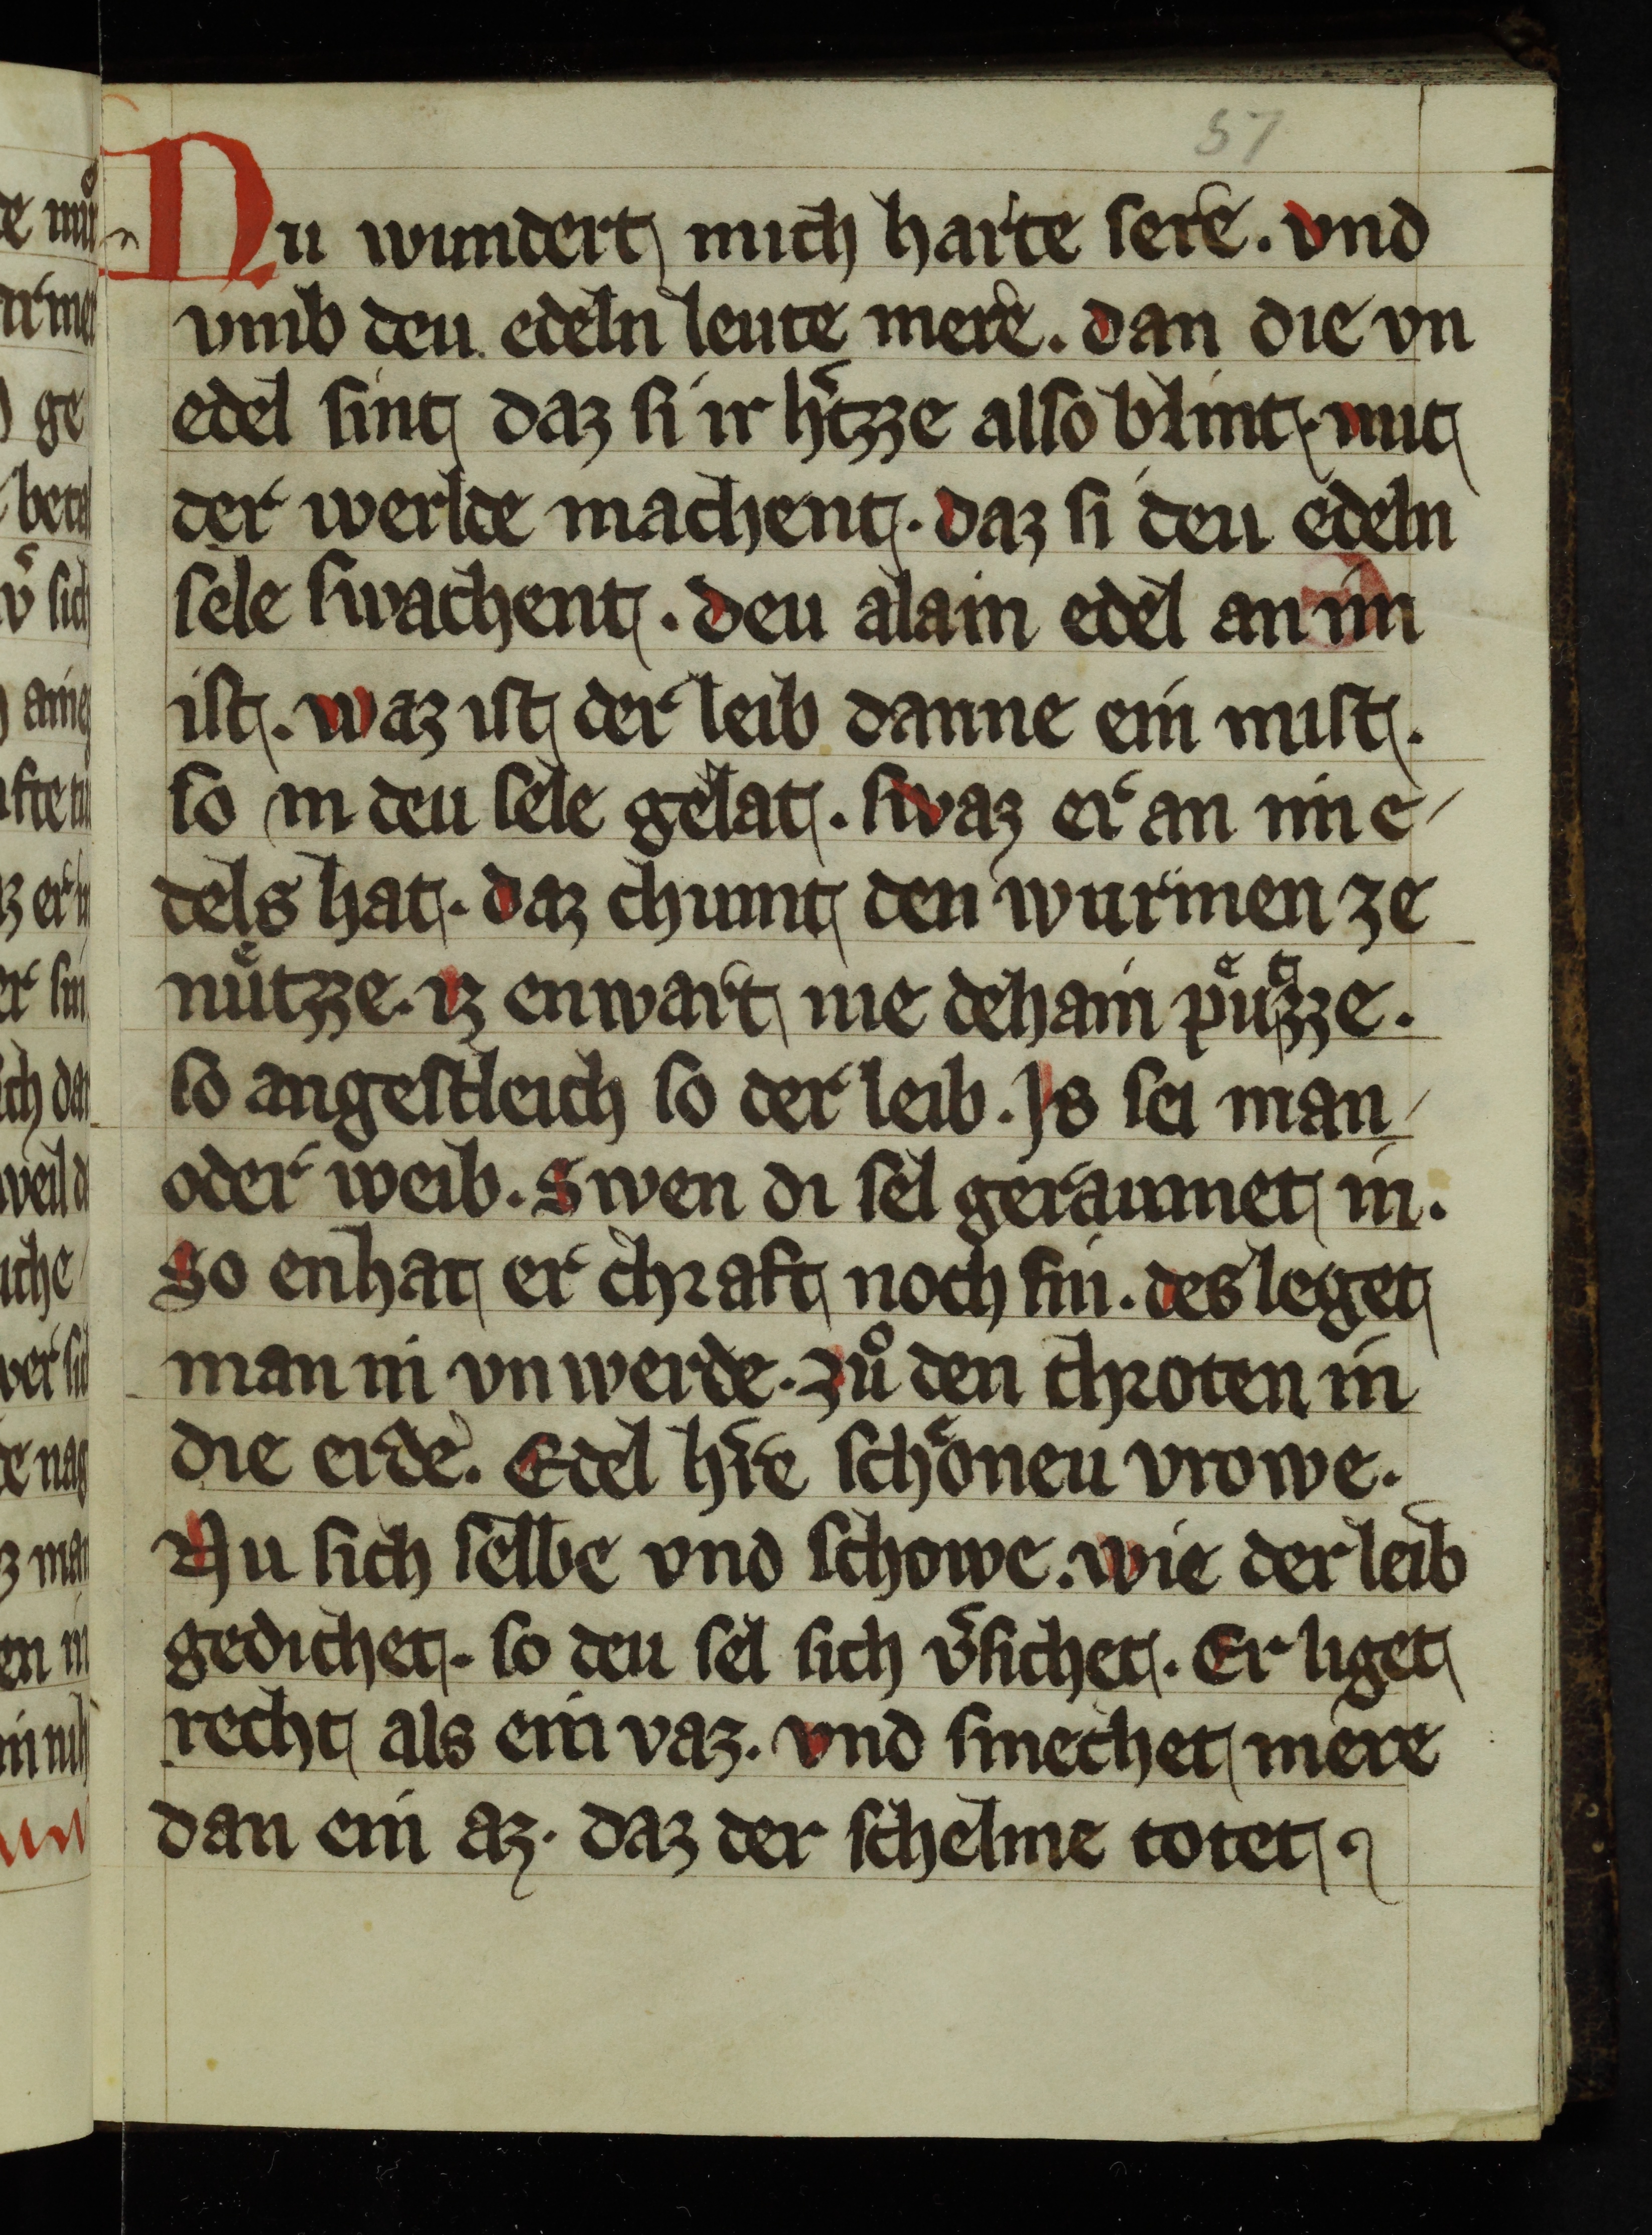 57
Nu wundert mich harte sere. vnd
vmb deu edeln leute mere. dan die vn
edel sint daz si ir hͤtzze also blint. mit
der werlde machent. daz si deu edeln
sele swachent. deu alain edel an im
ist. waz ist der leib danne ein mist.
so in deu sele gelat. swaz er an im e/
dels hat. daz chumt den wurmen ze
nuͤtzze. iz enwart nie dehain puͤtzze.
so angestleich so der leib. Js sei man/
oder weib. Swen di sel geraumet in.
So enhat er chraft noch sin. des leget
man in vnwerde. zuͦ den chroten in
die erde. Edel hͤre schoͤneu vrowe.
Nu sich selbe vnd schowe. wie der leib
gedichet. so deu sel sich v͛sichet. Er liget
recht als ein vaz. vnd smechet mere
dan ein az. daz der schelme totet.